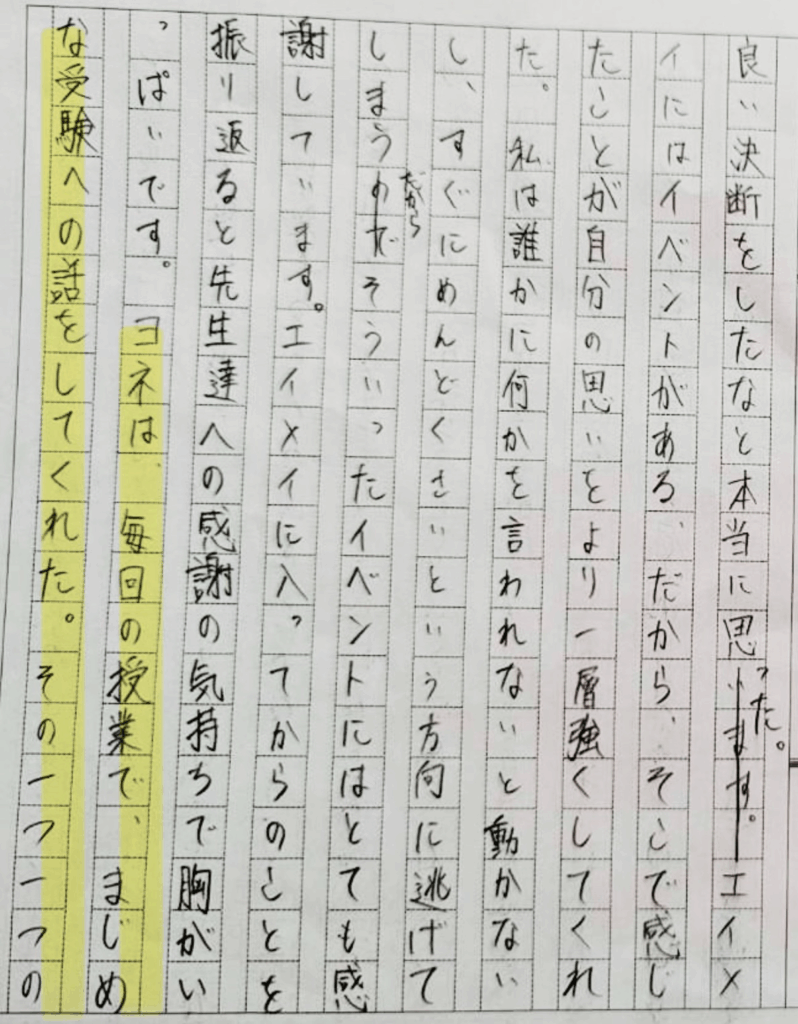 良い決断をしたなと本当に思います。った。エイメ
イにはイベントがある、だから、そこで感じ
たことが自分の思いをより一層強くしてくれ
た。私は誰かに何かを言われないと動かない
し、すぐにめんどくさいという方向に逃げて
しまうのだだからそういったイベントにはとても感
謝しています。エイメイに入ってからのことを
振り返ると先生達への感謝の気持ちで胸がい
っぱいです。ヨネは、毎回の授業で、まじめ
な受験への話をしてくれた。その一つ一つの